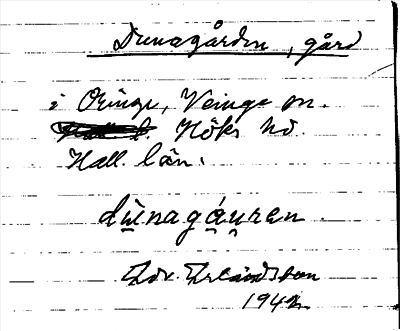 Dunagården, gård
i Öringe, Veinge sn.
Höks hd.
Hall. län.
dùnagáuren
Edv. Erlandsson
1942